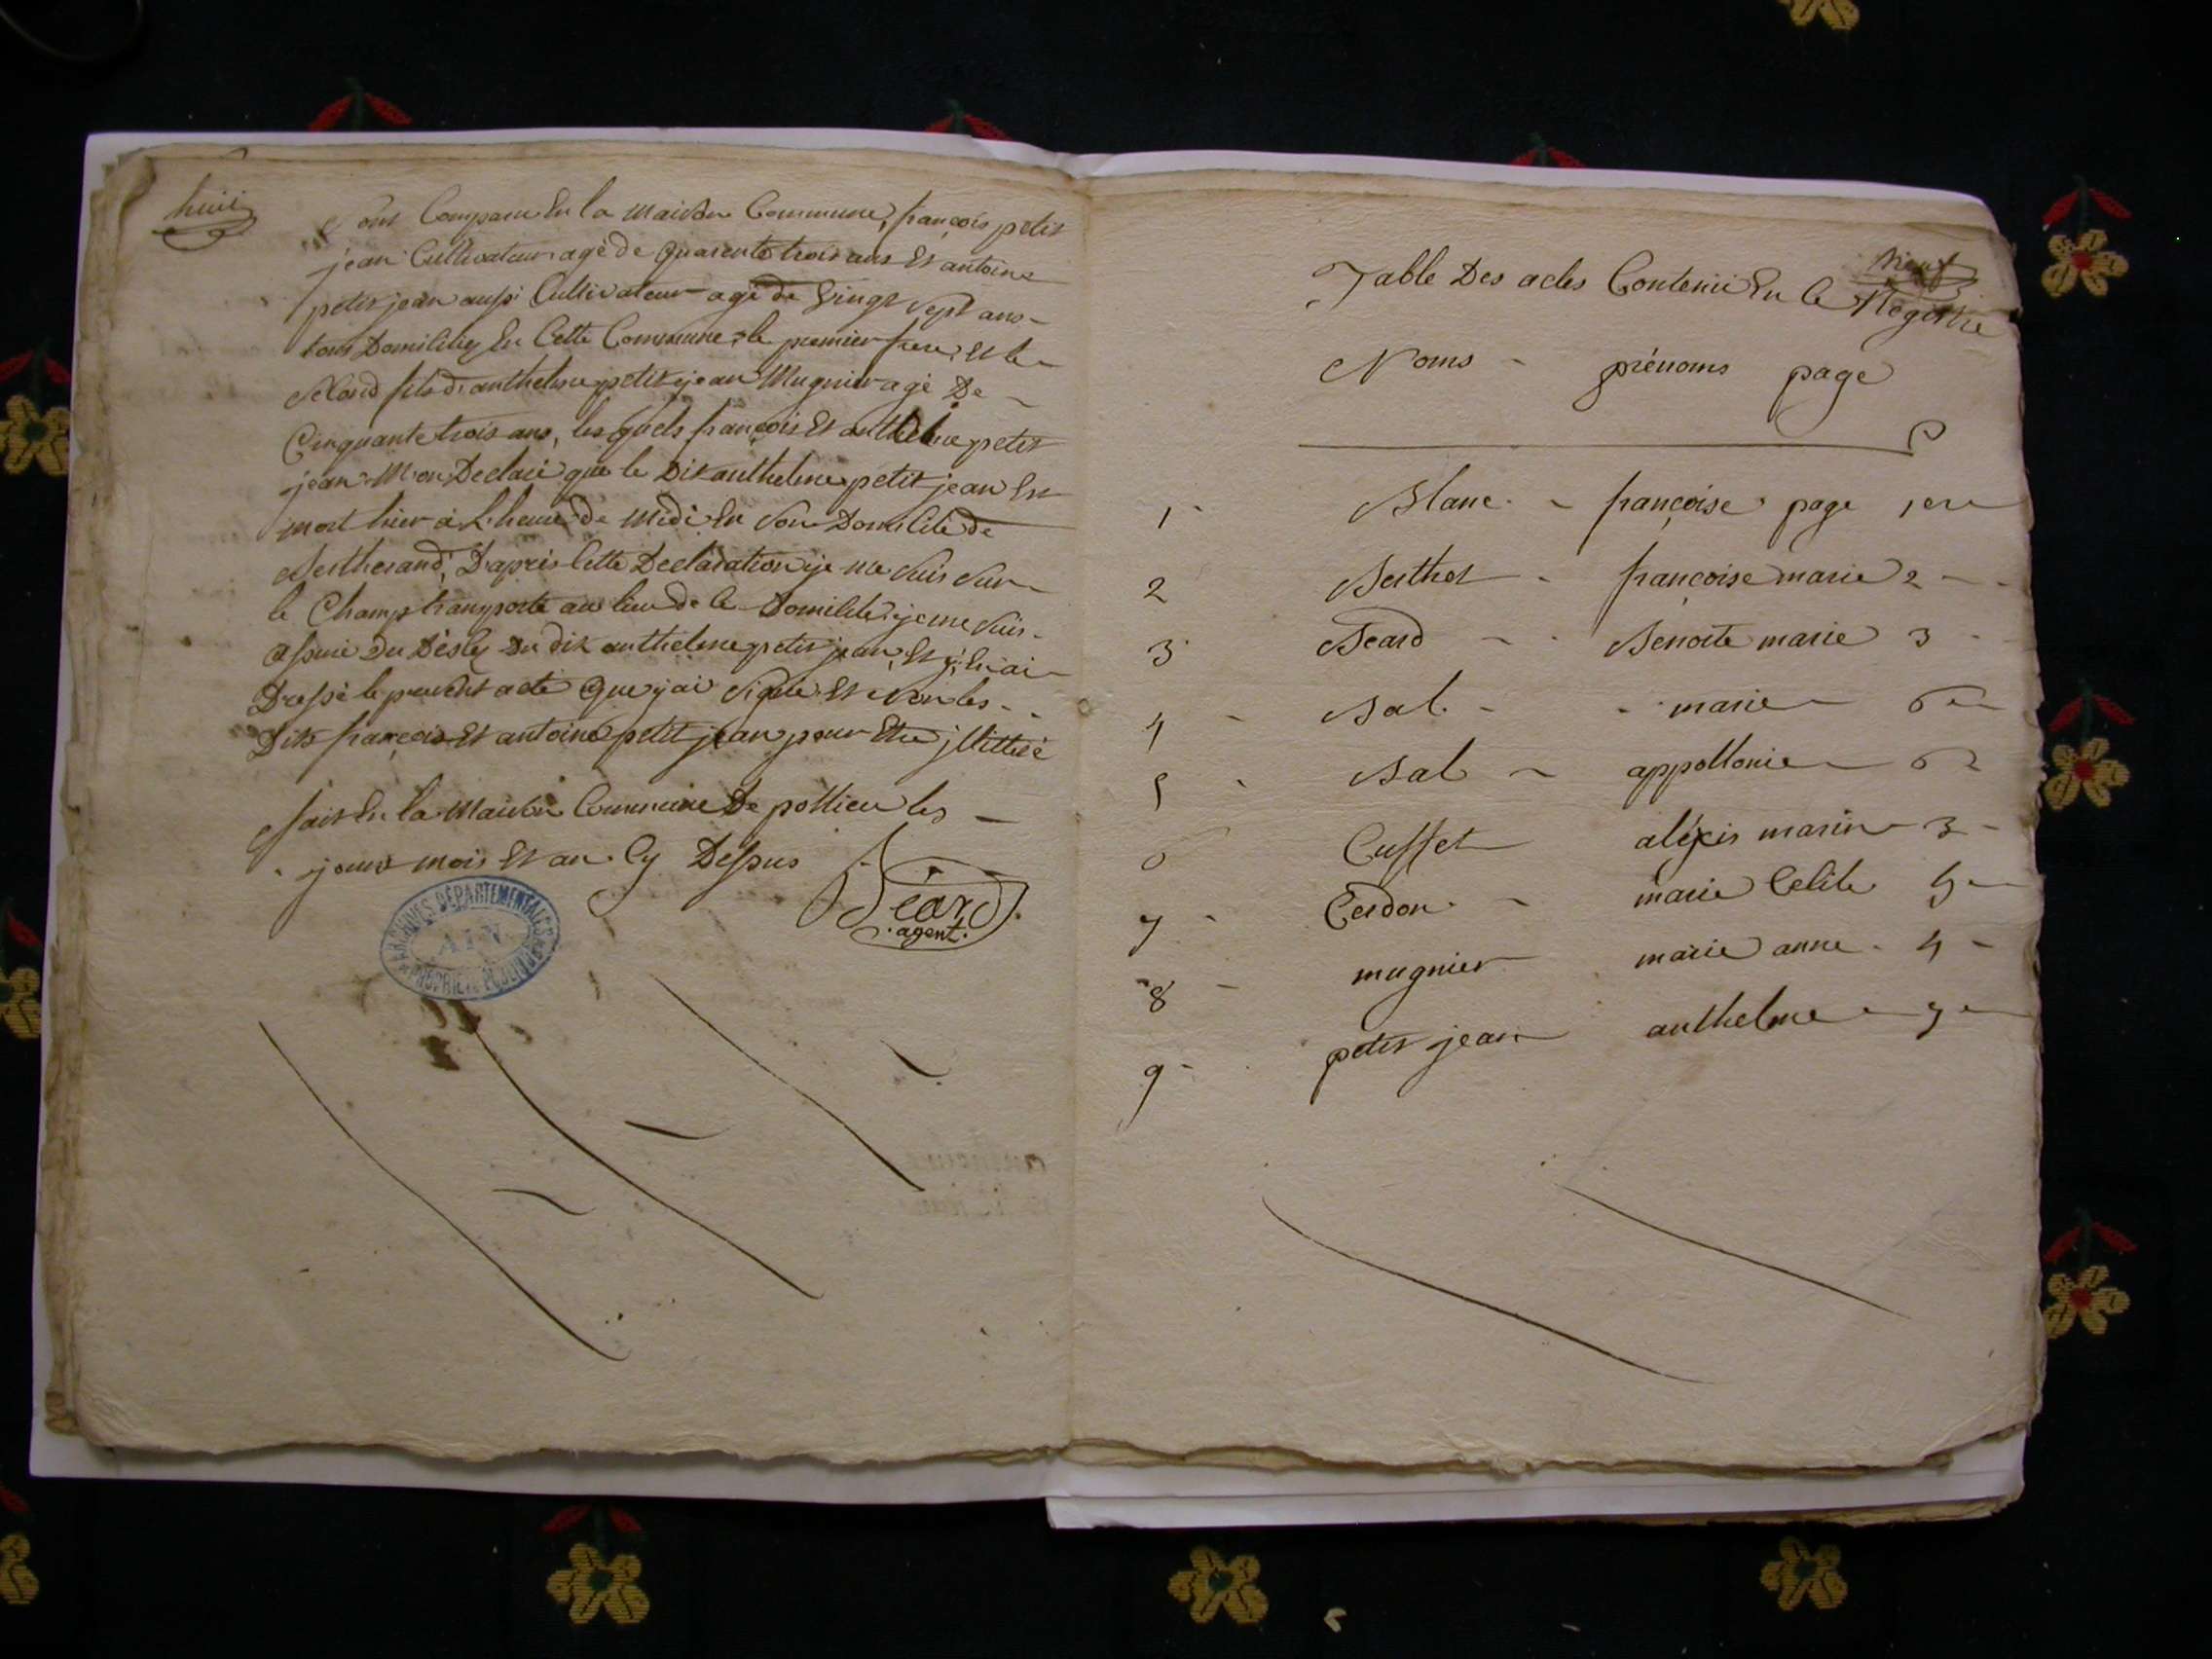 huit
ont Comparu En la maison Commune, françois petit
jean Cultivateur agé de quarente trois ans Et antoine
petit jean aussi Cultivateur agé de vingt sept ans -
tous Domiciliés En Cette Commune, le premier frere, Et le -
second fils d'anthelme petit jean Mugnier agé De -
Cinquante trois ans, lesquels françois Et anthelme petit
jean M'on Declaré que le Dit anthelme petit jean Est
mort hier à L'heure de midi En son Domicile de
Bertherand, D'après Cette Declaration je me suis sur -
le Champ transporté au lieu de Ce Domicile je me suis -
assuré Du Décès Du dit anthelme petit jean, Et j'En ai -
Dressé le présent acte Que j'ai signé Et Non les -
Dits françois Et antoine petit jean pour Etre jllitteré
fait En la Maison Commune De pollieu les -
jour mois Et an Cy Dessus
Béard
agent.
ARCHIVES DÉPARTEMENTALES
AIN
PROPRIÉTÉ PUBLIQUE
neuf
Table Des actes Contenu En Ce Registre
Noms - prénoms page
1 - Blanc - françoise page 1ere
2 Berthet - françoise marie 2 -
3 Beard - Benoite marie 3 -
4 - Bal - - marie - 6 -
5 - Bal - appollonie - 6
6 Cuffet aléxis marin - 3 -
7 - Cerdon - marie Celile 5 -
8 - mugnier marie anne - 4 -
9 - petit jean anthelme - 7 -